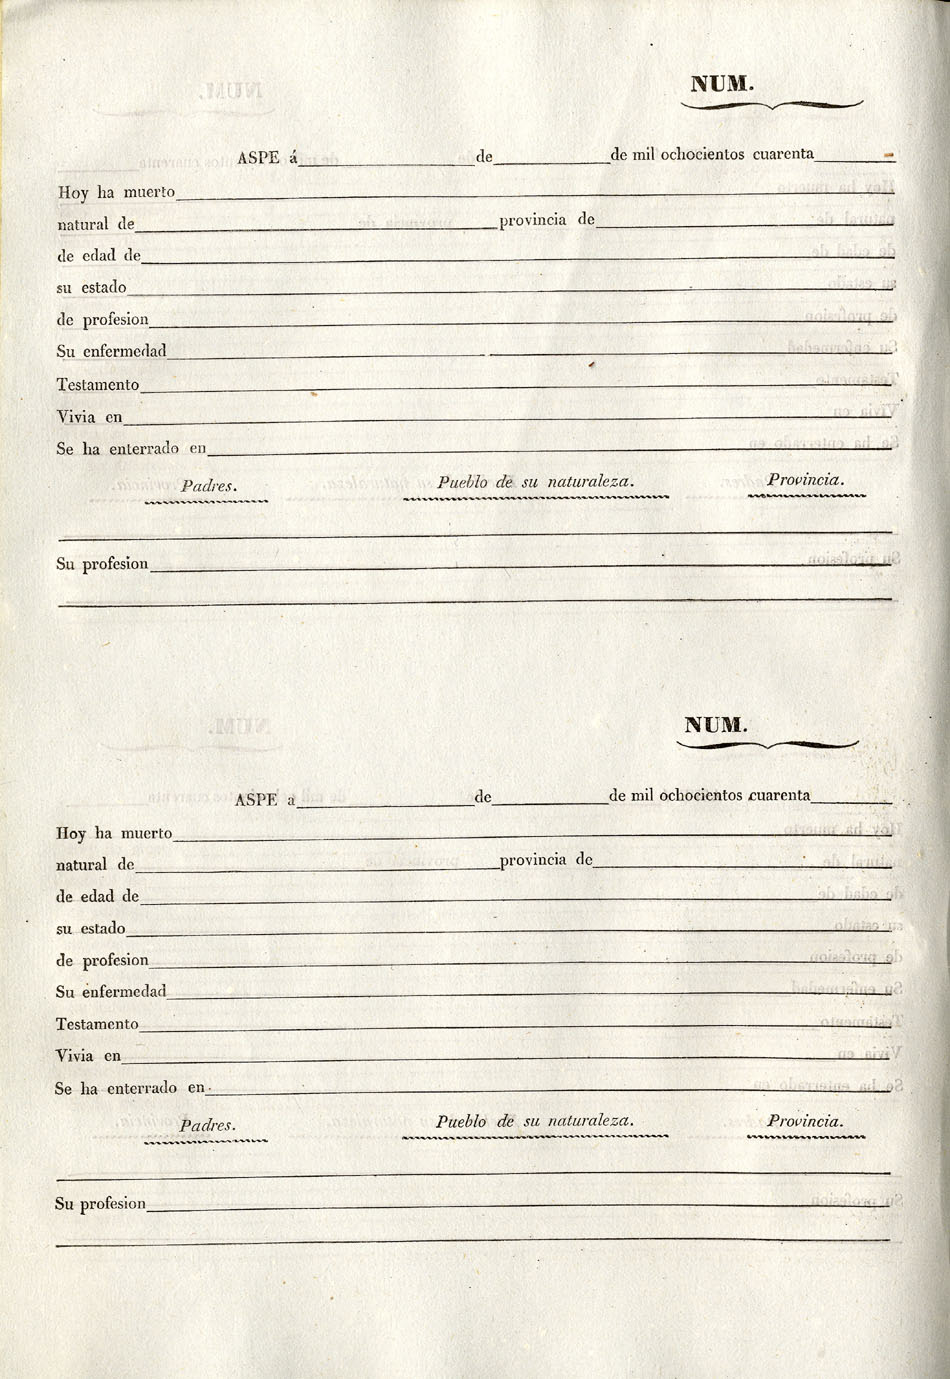 NUM.
ASPE á de de mil ochocientos cuarenta
Hoy ha muerto
natural de provincia de
de edad de
su estado
de profesion
Su enfermedad
Testamento
Vivia en
Se ha enterrado en
Padres. Pueblo de su naturaleza. Provincia.
Su profesion
NUM.
ASPE a de de mil ochocientos cuarenta
Hoy ha muerto
natural de provincia de
de edad de
su estado
de profesion
Su enfermedad
Testamento
Vivia en
Se ha enterrado en
Padres. Pueblo de su naturaleza. Provincia.
Su profesion